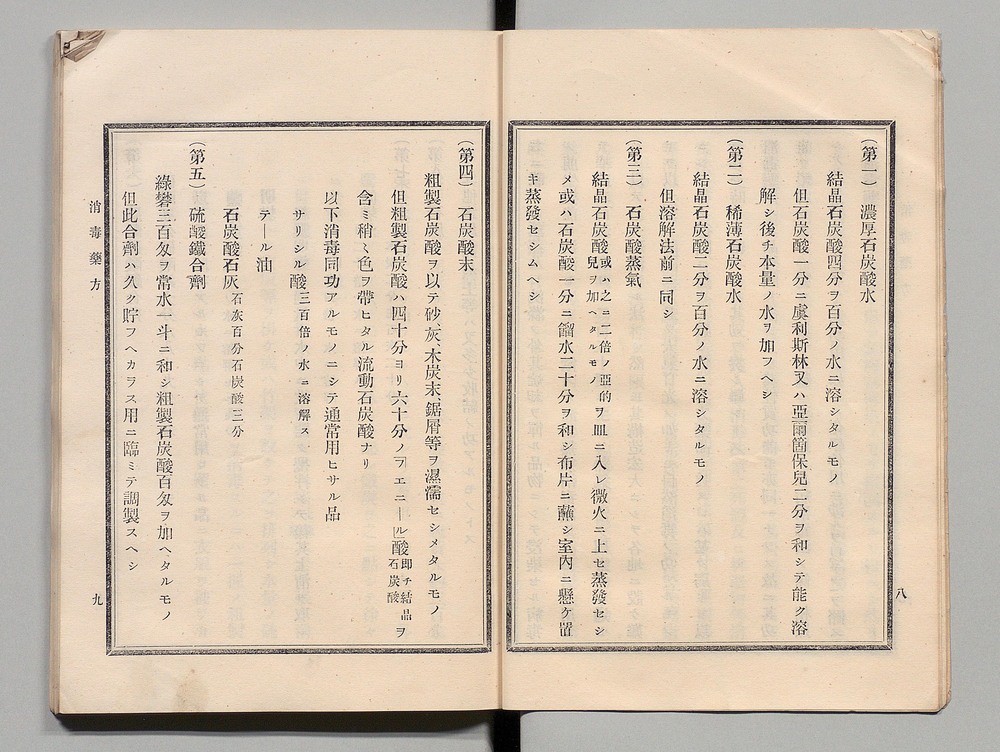 (第一) 濃厚石炭酸水
結晶石炭酸四分ヲ百分ノ水ニ溶シタルモノ
但石炭酸一分ニ虞利斯林又ハ亞爾箇保兒二分ヲ和シテ能ク溶
解シ後チ本量ノ水ヲ加フヘシ
(第二) 稀薄石炭酸水
結晶石炭酸二分ヲ百分ノ水ニ溶シタルモノ
但溶解法前ニ同シ
(第三) 石炭酸蒸氣
結晶石炭酸或ハ之ニ二倍ノ亞的兒ヲ加ヘタルモノヲ皿ニ入レ微火ニ上セ蒸發セシ
メ或ハ石炭酸一分ニ餾水二十分ヲ和シ布片ニ蘸シ室內ニ懸ケ置
キ蒸發セシムヘシ
八
(第四) 石炭酸末
粗製石炭酸ヲ以テ砂灰、木炭末、鋸屑等ヲ濕濡セシメタルモノ
但粗製石炭酸ハ四十分ヨリ六十分ノ「フエニール」酸即チ結晶石炭酸ヲ
含ミ稍々色ヲ帶ヒタル流動石炭酸ナリ
以下消毒同功アルモノニシテ通常用ヒサル品
サリシル酸三百倍ノ水ニ溶解ス
テール油
石炭酸石灰石灰百分石炭酸三分
(第五) 硫酸鐵合劑
綠礬三百匁ヲ常水一斗ニ和シ粗製石炭酸百匁ヲ加ヘタルモノ
但此合劑ハ久ク貯フヘカラス用ニ臨ミテ調製スヘシ
消毒藥方
九